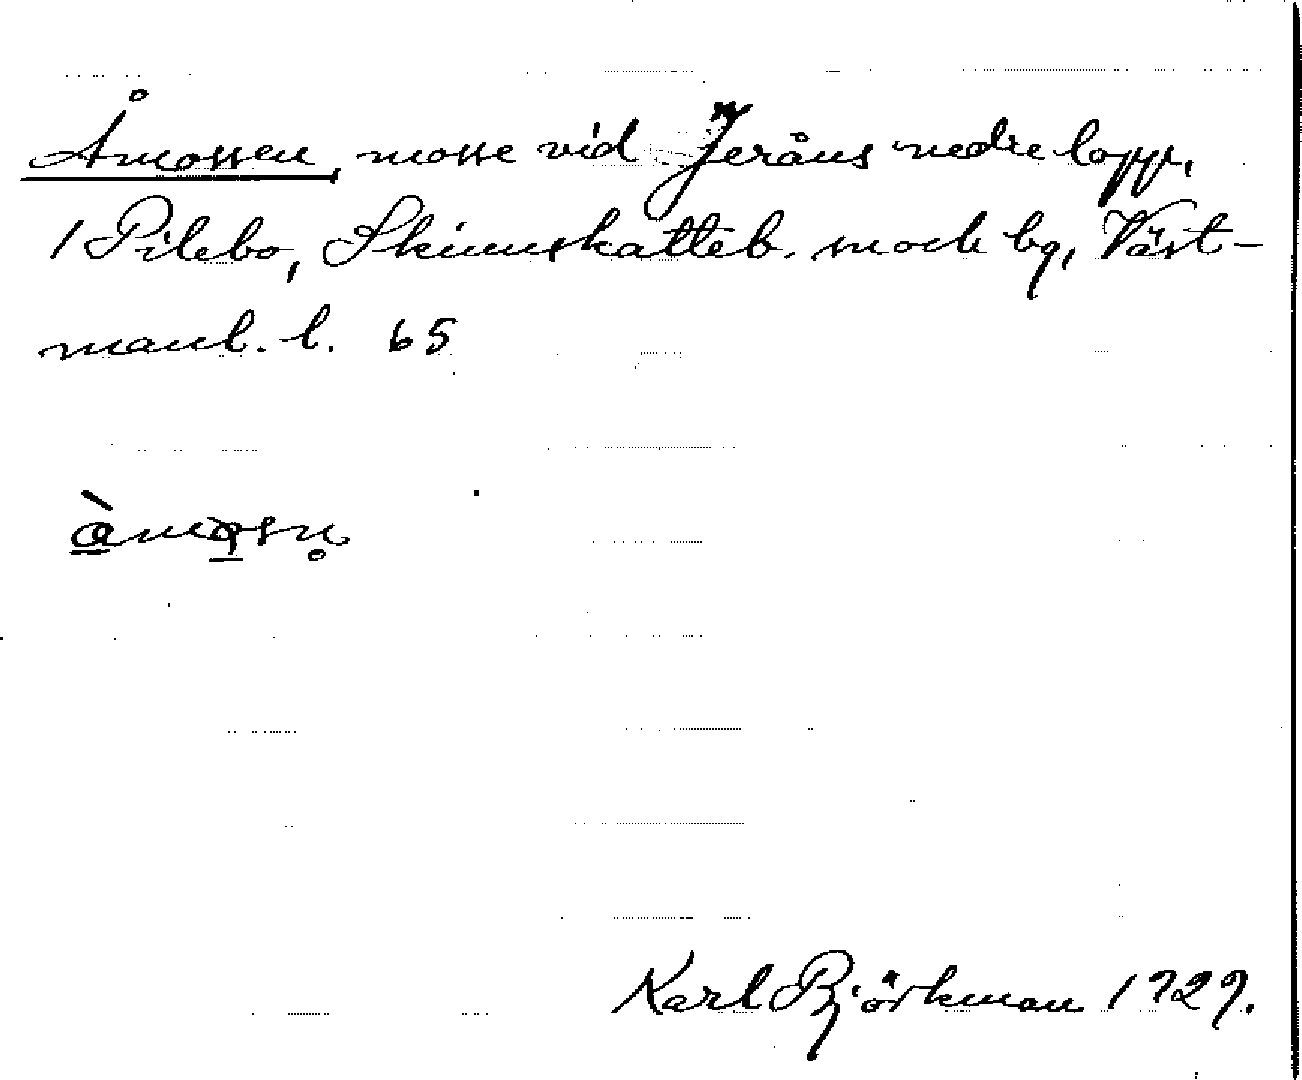 Åmossen, mosse vid Jeråns nedre lopp,
1 Pilebo, Skinnskatteb. sn och bg, Väst-
manl. l. 65
Karl Björkman 1929.